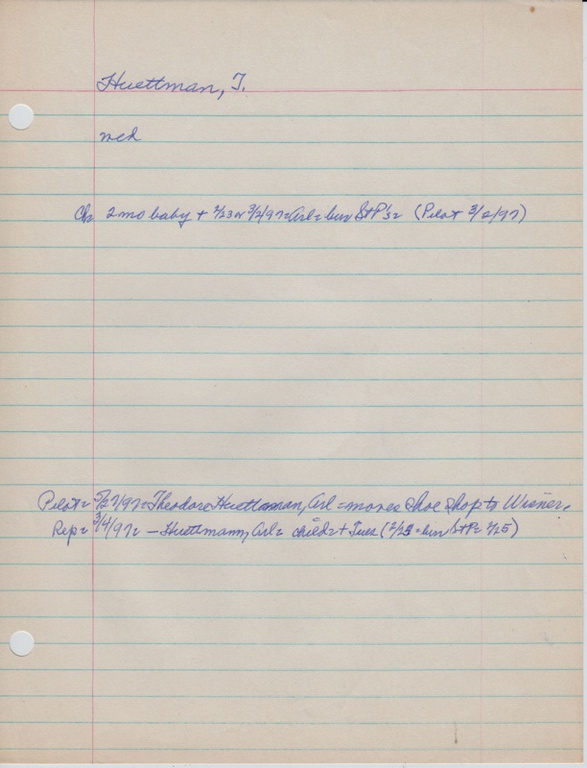 Huettman, T.
med
Ch 2 mo baby + 2/23 or 3/2/97 = Arl = bur St P's = (Pilot 3/2/97)
Pilot = 5/27/97 = Theodore Huettaman, Arl = moves shoe shop to Wisner.
Rep = 3/4/97 = - Huettmann, Arl = child = + Tues (2/23 = bur St P = 2/25)